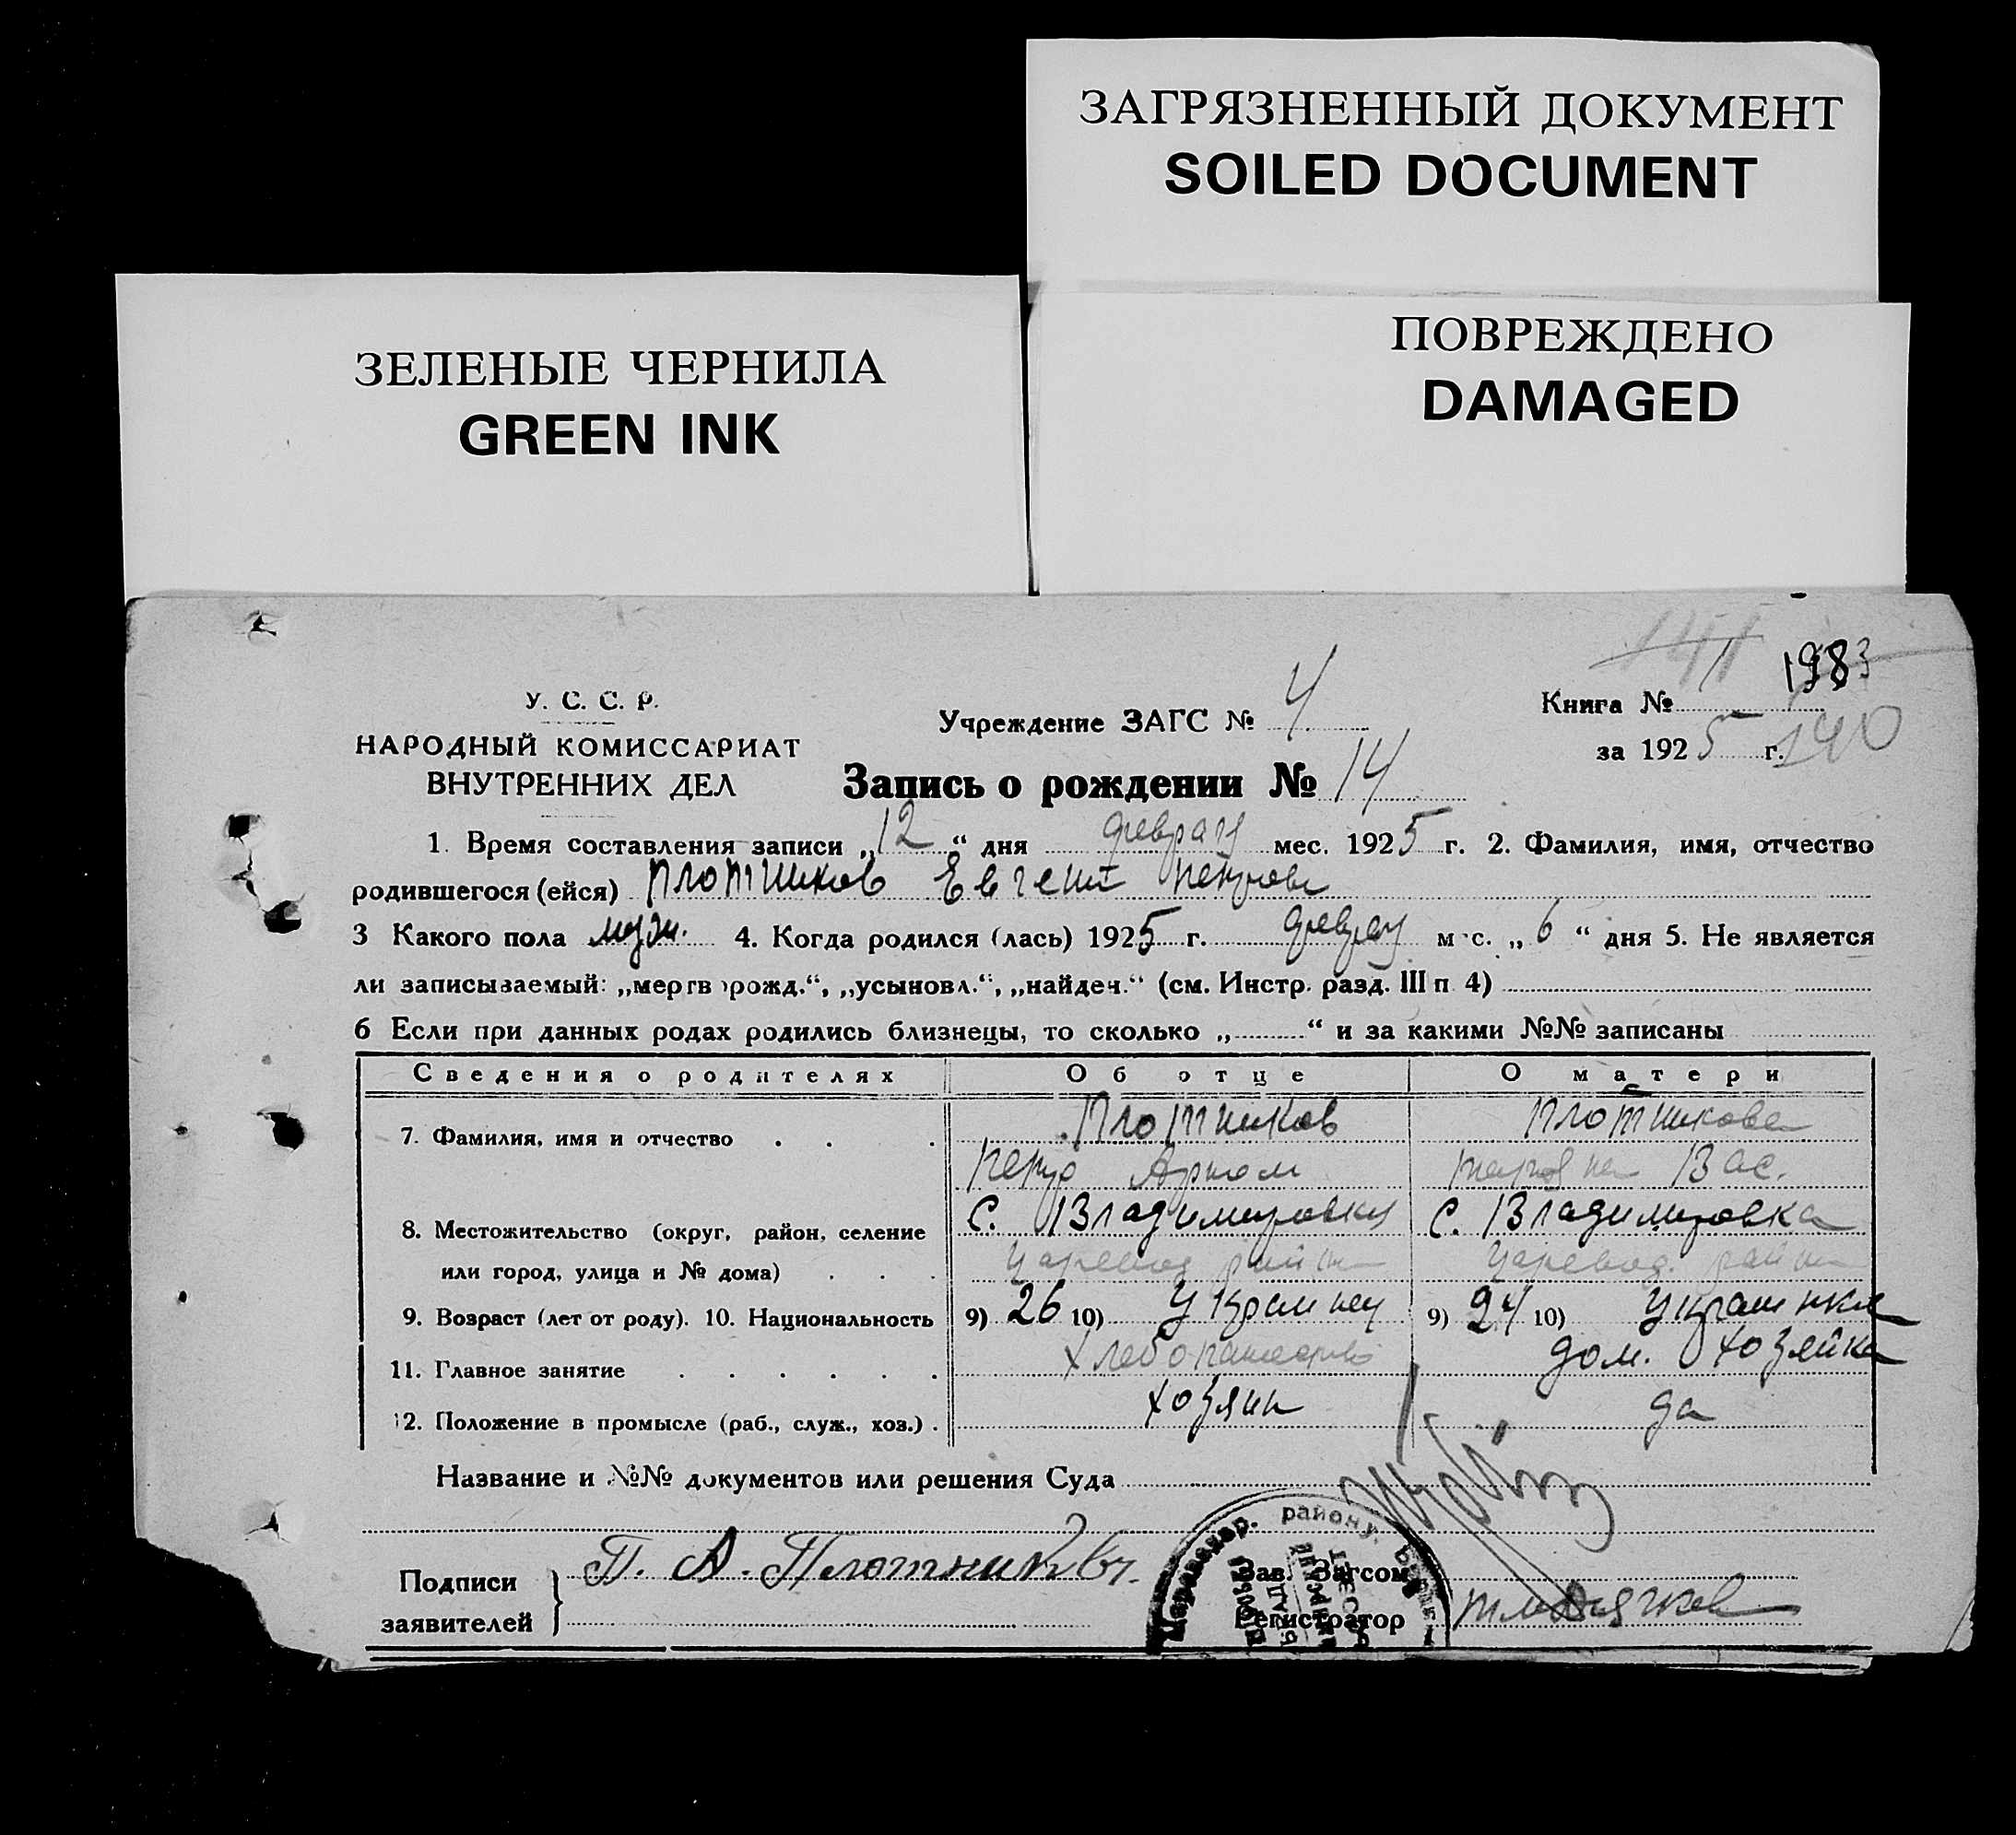 ЗАГРЯЗНЕННЫЙ ДОКУМЕНТ
SOILED DOCUMENT
ЗЕЛЕНЫЕ ЧЕРНИЛА
GREEN INK
ПОВРЕЖДЕНО
DAMAGED
У. С. С. Р.
НАРОДНЫЙ КОМИССАРИАТ
ВНУТРЕННИХ ДЕЛ
Учреждение ЗАГС № 4
Книга № 1
за 1925 г. 140
Запись о рождении № 14
1. Время составления записи „12“ дня мес. 1925 г. 2. Фамилия, имя, отчество
родившегося (ейся) Плотников Евгени
3 Какого пола муж. 4. Когда родился (лась) 1925 г. мес. „6“ дня 5. Не является
ли записываемый: „мертворожд.“, „усыновл.“, „найден.“ (см. Инстр. разд. III п 4)
6 Если при данных родах родились близнецы, то сколько „ “ и за какими №№ записаны
Сведения о родителях Об отце О матери
7. Фамилия, имя и отчество Плотников Плотникова
Петро Артем Вас.
8. Местожительство (округ, район, селение с. Владимировка с. Владимировка
или город, улица и № дома) Царевод район Царевод. район
9. Возраст (лет от роду). 10. Национальность 9) 26 10) Украинец 9) 24 10) Украинка
11. Главное занятие дом. хозяйка
12. Положение в промысле (раб., служ., хоз.) хозяин да
Название и №№ документов или решения Суда
Подписи заявителей П. А. Плотников
Зав. Загсом
Регистратор
району